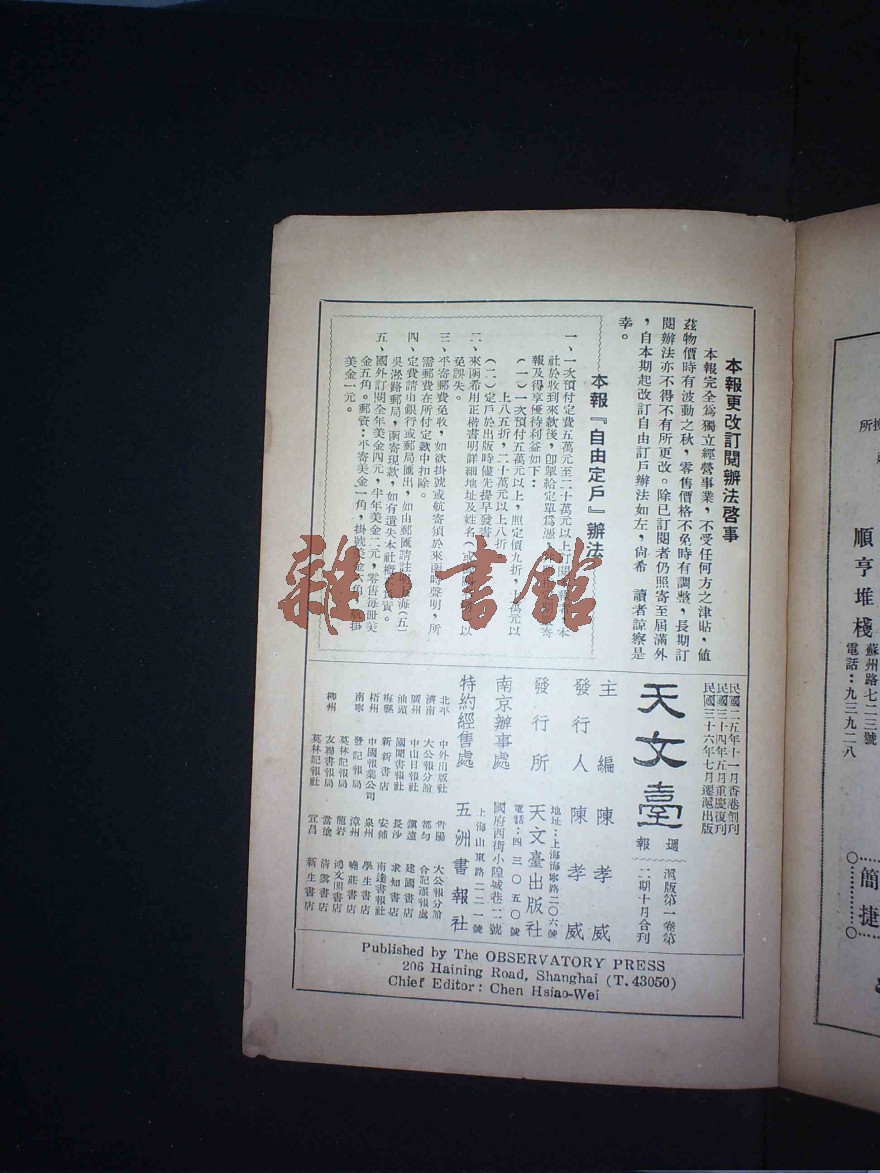 本報更改訂閱辦法啓事
本報完全爲獨立經營事業，不受任何方之津貼，值
茲物價時有波動之秋，零售價格不免時有調整，長期訂
閱辦法亦不得不有所更改。除已訂閱者仍照寄至屆滿外
，自本期起改訂自由訂戶辦法如左，尙希　讀者諒察是
幸。
本報『自由定戶』辦法
一、一次預付定費五萬元至二十萬元以上
社於收到來款後，卽掣給定單爲憑
報及得享優待利益如下：
（一）一次預付五萬元以上，照定價九折，十萬元以
上八五折，二十萬元以上八折。
（二）定戶於出版時儘先提早發書
二、來函希用正楷書明詳細地址及姓名（或
免誤失。
三、平寄郵費免收，如欲掛號或航寄須於來函時聲明，所
需郵費在所付定款中扣除。
四、定費請由銀行或郵局匯出，如由郵匯請註明上海（五）
吳淞路郵局，函寄現款，如有遺失本社概不負責。
五、國外訂閱全年美金四元，半年美金二元，零售每冊美
金五角。郵資：平寄美金一角，掛號美金六角，航掛
美金一元。
民國二五年十一月香港創刊
民國三十四年五月重慶復刊
民國三十六年七月遷滬出版
天文臺
週報
滬版第一卷第
二期十月合刊
主編　陳孝威
發行人　陳孝威
發行所　天文臺出版社
地址：上海海寧路二〇六號
電話：四三〇五〇號
南京辦事處　國府西街小隍城巷二號
特約經售處　五洲書報社
上海山東路二二一號
北平　中外出版社
濟南　大公報分館
廣州　中山日報社
汕頭　國聞書報社
梅縣　新新書店
梧州　中國報業公司
南寧　登記報局
柳州　友聯書報局
英林記報社
貴陽　大公報分館
都勻
鎮遠　建國書店
長沙　求知書店
安鄉　南達書報社
泉州　學生書店
漳州
龍岩　鴻文閣書店
當塗　清雲書店
宜昌　新生書店
Published by The OBSERVATORY PRESS
206 Haining Road, Shanghai (T. 43050)
Chief Editor: Chen Hsiao-Wei
雜·書館
順亨堆棧
蘇州路七二三號
電話：九三九二八
簡捷